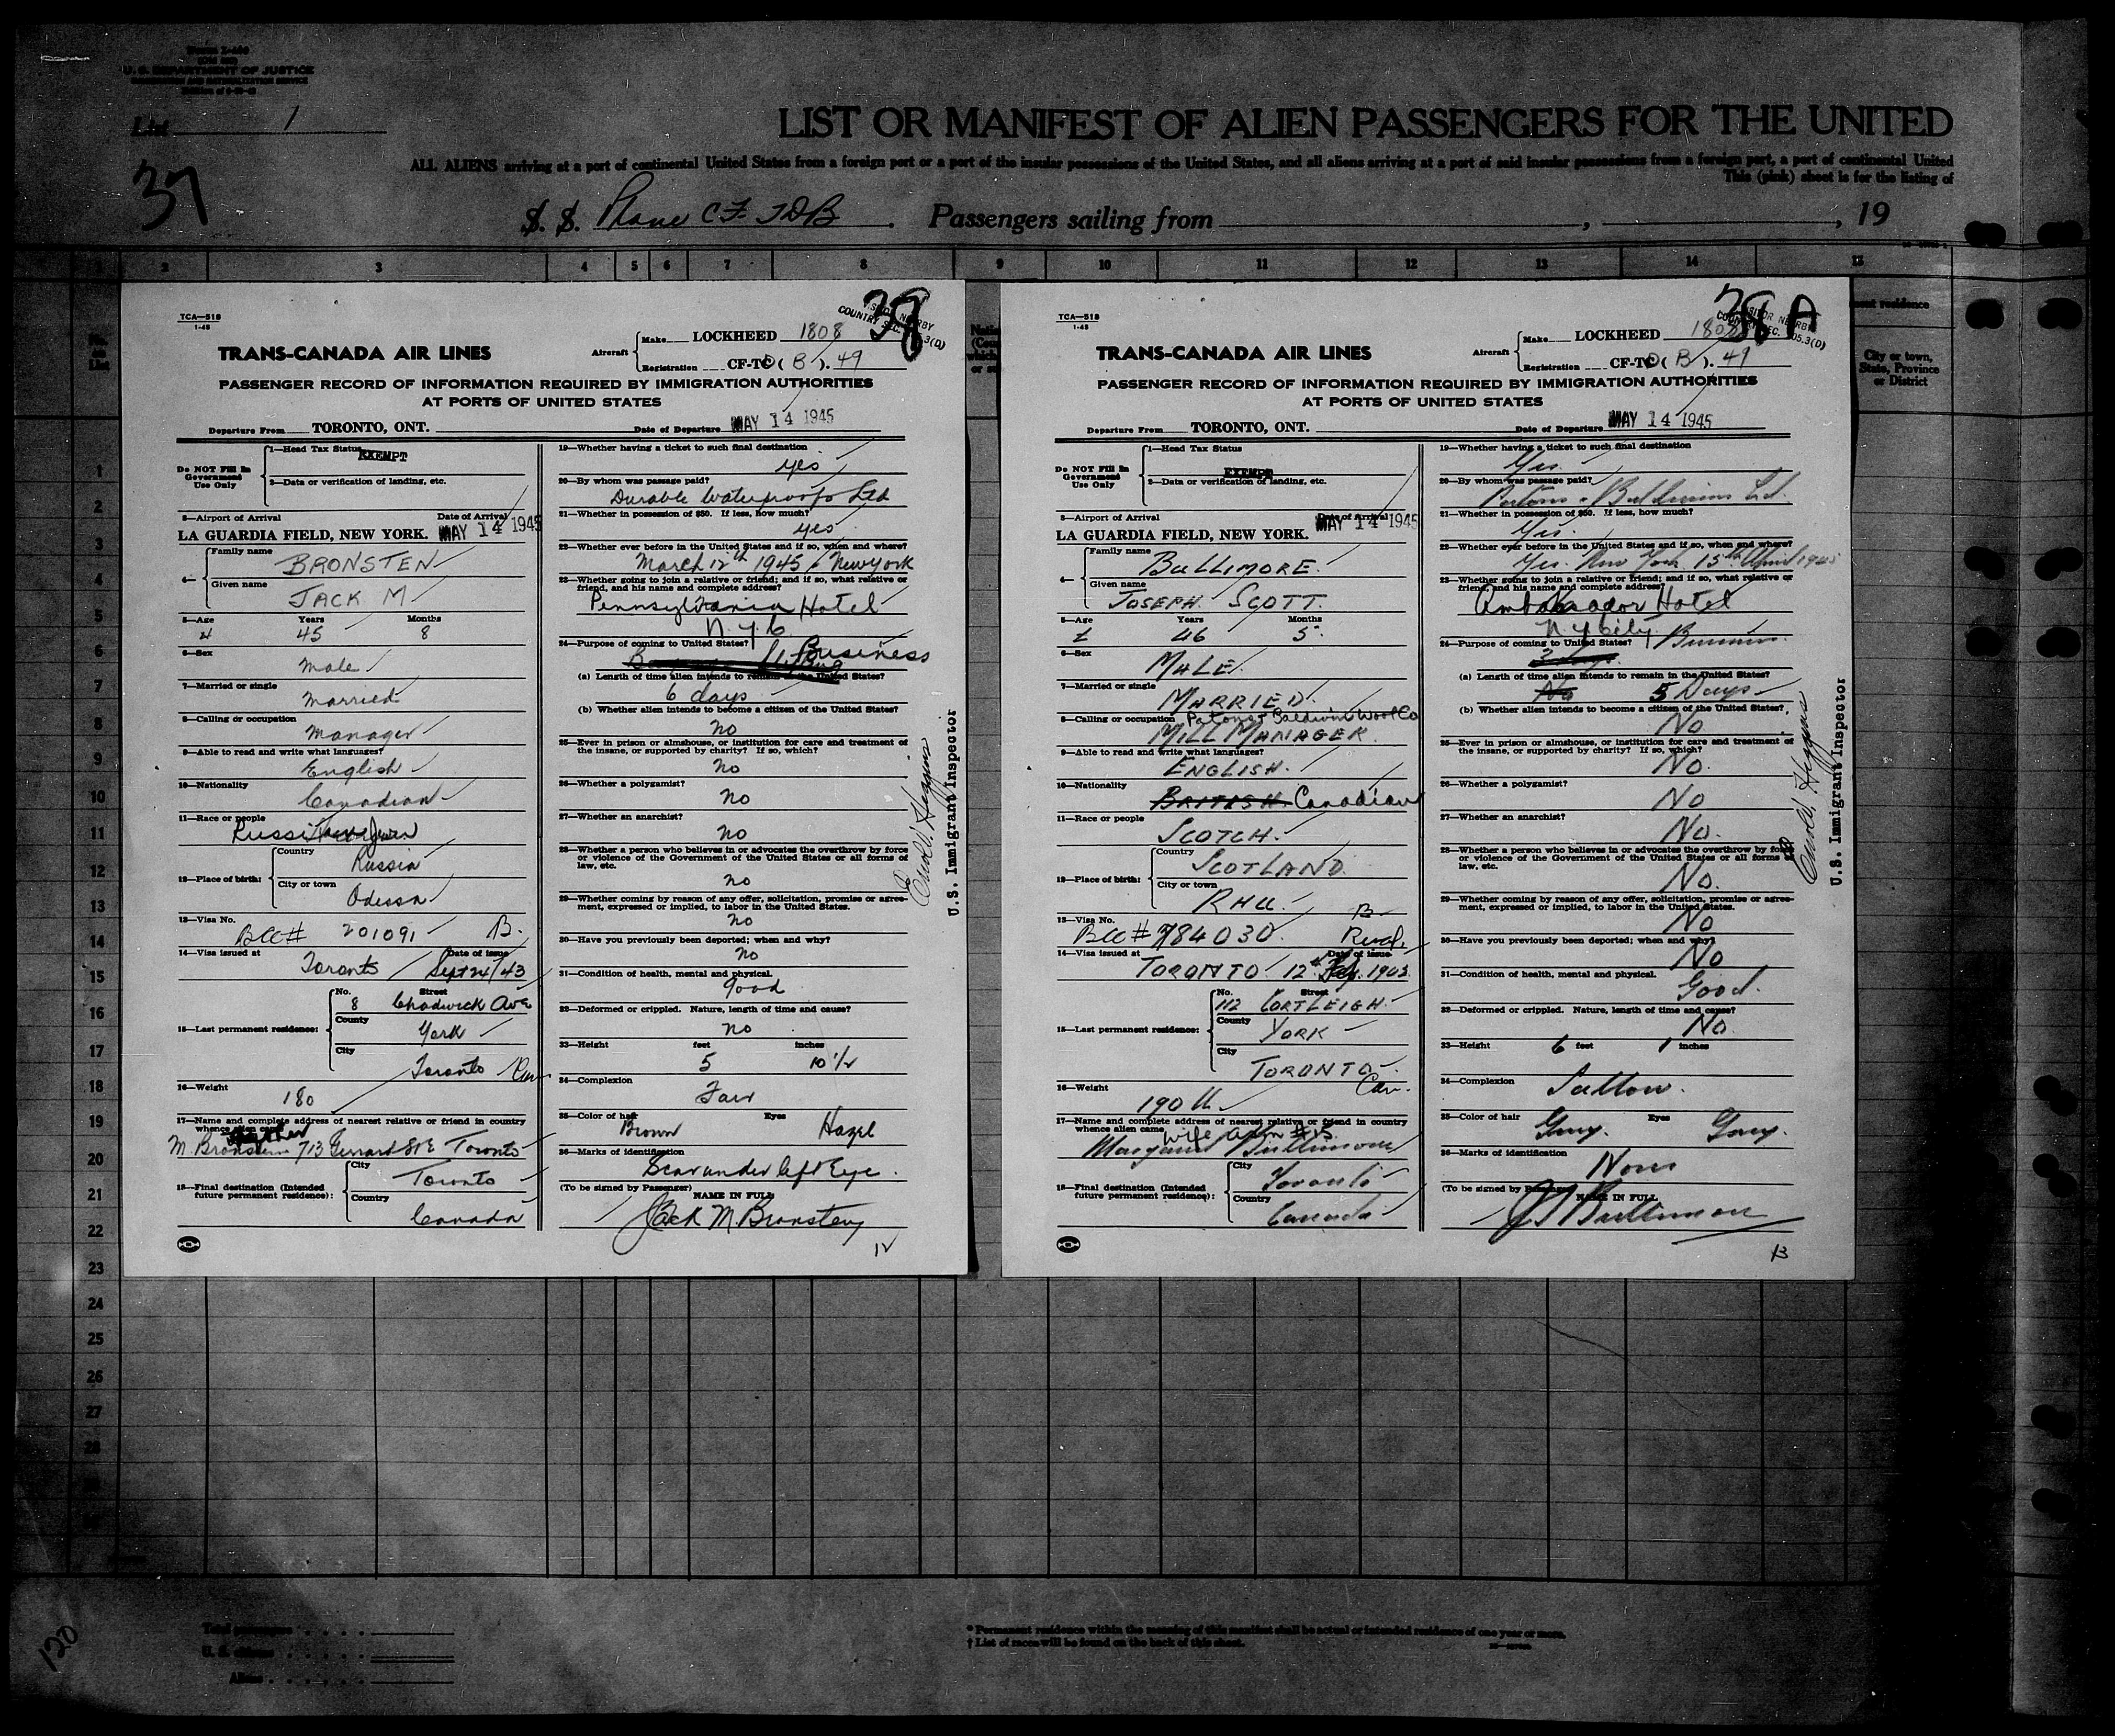 U. S. DEPARTMENT OF JUSTICE
List 1
37
LIST OR MANIFEST OF ALIEN PASSENGERS FOR THE UNITED
ALL ALIENS arriving at a port of continental United States from a foreign port or a port of the insular possessions of the United States, and all aliens arriving at a port of said insular possessions from a foreign port, a port of continental United
This (pink) sheet is for the listing of
S. S. Plane CF TDB . Passengers sailing from , , 19
1 2 3 4 5 6 7 8 9 10 11 12 13 14 15
No. on List
City or town, State, Province or District
TCA—518
1-45
38
TRANS-CANADA AIR LINES
Aircraft Make LOCKHEED 1808
Registration CF-TC ( B ). 49
PASSENGER RECORD OF INFORMATION REQUIRED BY IMMIGRATION AUTHORITIES
AT PORTS OF UNITED STATES
Departure From TORONTO, ONT. Date of Departure MAY 14 1945
Do NOT Fill In Government Use Only
1—Head Tax Status EXEMPT
2—Data or verification of landing, etc.
3—Airport of Arrival Date of Arrival
LA GUARDIA FIELD, NEW YORK. MAY 14 1945
4— Family name BRONSTEN
Given name JACK M
5—Age Years 45 Months 8
6—Sex Male
7—Married or single Married
8—Calling or occupation Manager
9—Able to read and write what languages? English
10—Nationality Canadian
11—Race or people Russian
12—Place of birth: Country Russia
City or town Odessa
13—Visa No. BCC# 201091 B.
14—Visa issued at Toronto Date of issue Sept 24/43
15—Last permanent residence: No. 8 Street Chadwick Ave
County York
City Toronto Can
16—Weight 180
17—Name and complete address of nearest relative or friend in country whence alien came
M. Bronsten 713 Gerrard St E Toronto
18—Final destination (Intended future permanent residence): City Toronto
Country Canada
19—Whether having a ticket to such final destination yes
20—By whom was passage paid? Durable Waterproofs Ltd
21—Whether in possession of $50. If less, how much? yes
22—Whether ever before in the United States and if so, when and where?
March 12th 1945 New York
23—Whether going to join a relative or friend; and if so, what relative or friend, and his name and complete address?
Pennsylvania Hotel
N.Y.C.
24—Purpose of coming to United States? Business
(a) Length of time alien intends to remain in the United States?
6 days
(b) Whether alien intends to become a citizen of the United States?
No
25—Ever in prison or almshouse, or institution for care and treatment of the insane, or supported by charity? If so, which?
No
26—Whether a polygamist?
No
27—Whether an anarchist?
No
28—Whether a person who believes in or advocates the overthrow by force or violence of the Government of the United States or all forms of law, etc.
No
29—Whether coming by reason of any offer, solicitation, promise or agreement, expressed or implied, to labor in the United States.
No
30—Have you previously been deported; when and why?
No
31—Condition of health, mental and physical.
Good
32—Deformed or crippled. Nature, length of time and cause?
No
33—Height feet 5 inches 10 1/2
34—Complexion Fair
35—Color of hair Brown Eyes Hazel
36—Marks of identification
Scar under left Eye.
(To be signed by Passenger) NAME IN FULL
Jack M. Bronsten
12
U.S. Immigrant Inspector
TCA—518
1-45
38 A
TRANS-CANADA AIR LINES
Aircraft Make LOCKHEED 1808
Registration CF-TC ( B ). 49
PASSENGER RECORD OF INFORMATION REQUIRED BY IMMIGRATION AUTHORITIES
AT PORTS OF UNITED STATES
Departure From TORONTO, ONT. Date of Departure MAY 14 1945
Do NOT Fill In Government Use Only
1—Head Tax Status
EXEMPT
2—Data or verification of landing, etc.
3—Airport of Arrival Date of Arrival
LA GUARDIA FIELD, NEW YORK. MAY 14 1945
4— Family name BULLIMORE.
Given name JOSEPH SCOTT.
5—Age Years 46 Months 5
6—Sex MALE
7—Married or single MARRIED.
8—Calling or occupation Patons & Baldwins Wool Co
MILL MANAGER
9—Able to read and write what languages? ENGLISH.
10—Nationality BRITISH Canadian
11—Race or people SCOTCH.
12—Place of birth: Country SCOTLAND
City or town RHU.
13—Visa No. BCC # 784030. B
14—Visa issued at TORONTO Date of issue 12th
15—Last permanent residence: No. 112 Street CORTLEIGH.
County YORK
City TORONTO
Can.
16—Weight 190 lb.
17—Name and complete address of nearest relative or friend in country whence alien came
wife
Margaret Bullimore
18—Final destination (Intended future permanent residence): City Toronto
Country Canada
19—Whether having a ticket to such final destination
Yes.
20—By whom was passage paid?
Patons & Baldwins Ltd.
21—Whether in possession of $50. If less, how much?
Yes.
22—Whether ever before in the United States and if so, when and where?
Yes. New York. 15th April 1945
23—Whether going to join a relative or friend; and if so, what relative or friend, and his name and complete address?
Ambassador Hotel
N.Y City
24—Purpose of coming to United States? Business.
3 days.
(a) Length of time alien intends to remain in the United States?
No 5 Days
(b) Whether alien intends to become a citizen of the United States?
No
25—Ever in prison or almshouse, or institution for care and treatment of the insane, or supported by charity? If so, which?
No.
26—Whether a polygamist?
No
27—Whether an anarchist?
No.
28—Whether a person who believes in or advocates the overthrow by force or violence of the Government of the United States or all forms of law, etc.
No.
29—Whether coming by reason of any offer, solicitation, promise or agreement, expressed or implied, to labor in the United States.
No
30—Have you previously been deported; when and why?
No
31—Condition of health, mental and physical.
Good.
32—Deformed or crippled. Nature, length of time and cause?
No.
33—Height 6 feet 1 inches
34—Complexion Sallow.
35—Color of hair Grey. Eyes Grey.
36—Marks of identification
None
(To be signed by Passenger) NAME IN FULL
J S Bullimore
13
U.S. Immigrant Inspector
1
2
3
4
5
6
7
8
9
10
11
12
13
14
15
16
17
18
19
20
21
22
23
24
25
26
27
28
120
* Permanent residence within the meaning of this manifest shall be actual or intended residence of one year or more.
† List of races will be found on the back of this sheet.